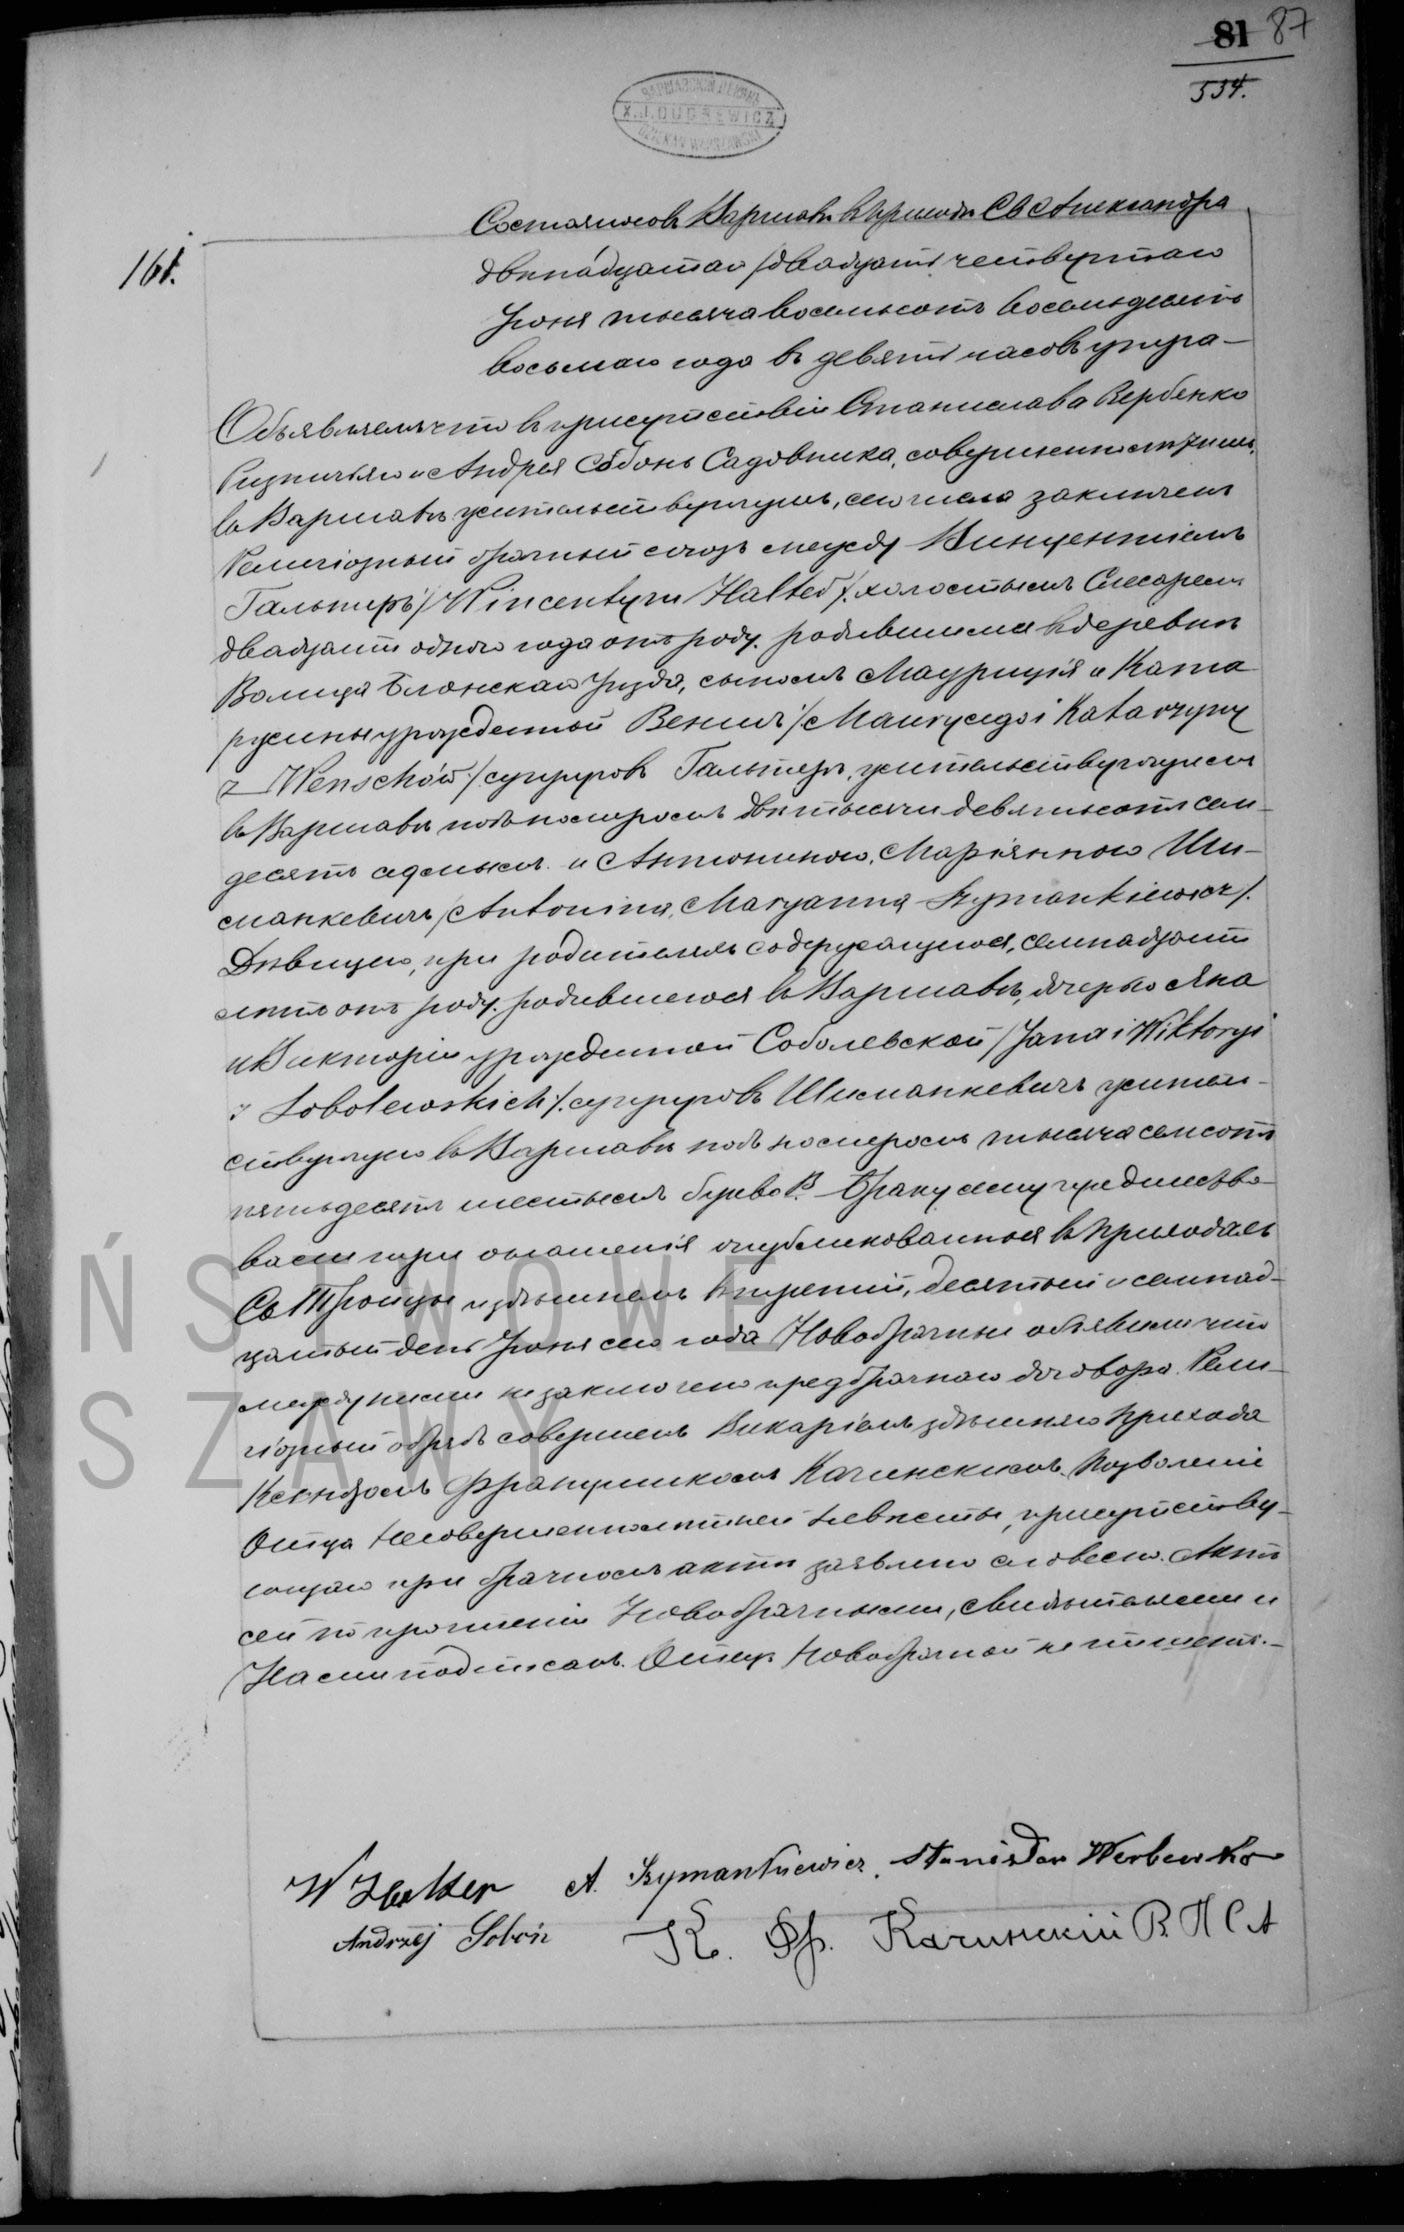 81 87
534.
X.J. DUDREWICZ
161.
Состоялось въ Варшавѣ въ приходѣ Св Александра
двѣнадцатаго /двадцать четвертаго
Іюня тысяча восемьсотъ восемьдесятъ
восьмаго года въ девять часовъ утра –
Объявляемъ что въ присутствіи Станислава Вербенко
Ризничьяго и Андрея Собонь Садовника, совершеннолѣтнихъ,
въ Варшавѣ жительствующихъ, сего числа заключенъ
Религіозный брачный союзъ между Винцентіемъ
Гальтеръ /Wincentym Halter/ холостымъ Слесаремъ
двадцати одного года отъ роду, родившимся въ деревнѣ
Волица Блонскаго Уѣзда, сыномъ Мауриція и Ката
ржины урожденной Веншъ /Maurycego i Katarzyny
z Wenschów/ супруговъ Гальтеръ, жительствующимъ
въ Варшавѣ подъ номеромъ двѣ тысячи девятьсотъ сем-
десятъ седмымъ и Антониною, Маріянною Ши-
манкевичъ /Antonina, Maryanna Szymankiewicz/.
Дѣвицею, при родителяхъ содержащеюся, семнадцати
лѣтъ отъ роду, родившеюся въ Варшавѣ, дочерью Яна
и Викторіи урожденной Соболевской /Jana i Wiktoryi
z Sobolewskich/ супруговъ Шиманкевичъ житель-
ствующею въ Варшавѣ подъ номеромъ тысяча семсотъ
пятьдесятъ шестымъ буква В. Браку сему предшество-
вали три оглашенія опубликованныя въ приходахъ
Св Троицы и здѣшнемъ въ третій, десятый и семнад-
цатый день Іюня сего года Новобрачные объявили что
между ними не заключено предбрачнаго договора. Рели-
гіозный обрядъ совершенъ Викаріемъ здѣшняго прихода
Ксендзомъ Францишкомъ Качинскимъ. Позволеніе
Отца Несовершеннолѣтней невѣсты, присутству-
ющаго при брачномъ актѣ заявлено словесно. Актъ
сей по прочтеніи Новобрачными, свидѣтелями и
Нами подписанъ. Отецъ Новобрачной не пишетъ. –
W Halter A. Szymankiewicz. Stanisław Werbenko
Andrzej Soboń К. Фр. Качинскій В П С А
ŃSTWOWE
SZAWY